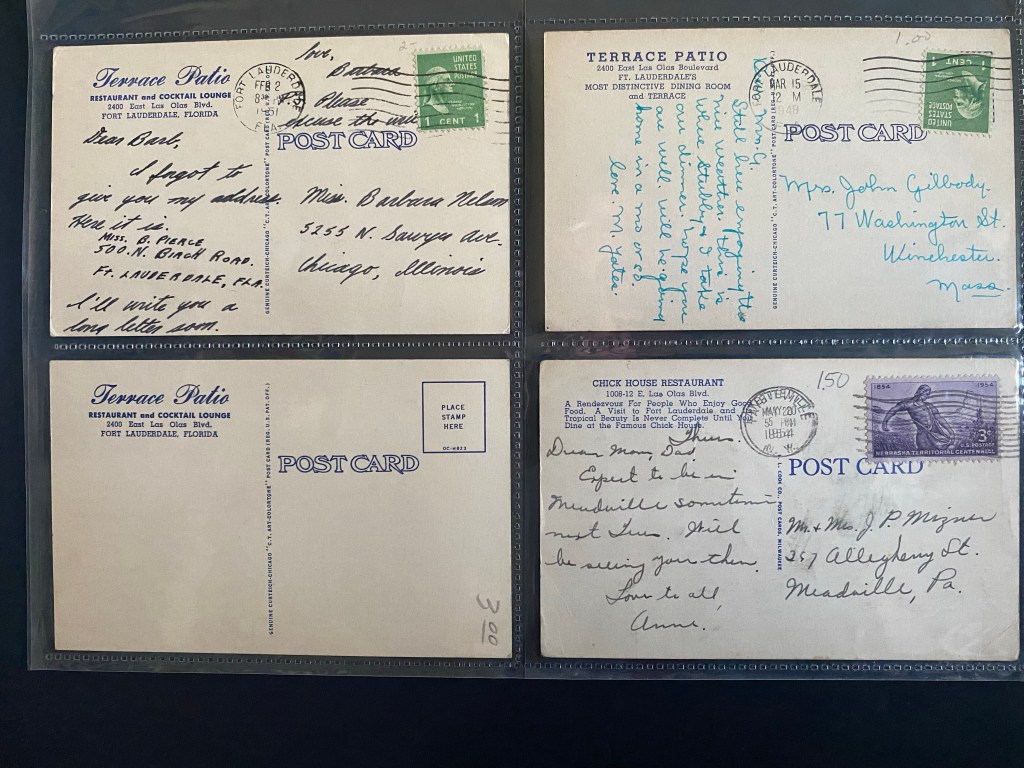 Terrace Patio
RESTAURANT and COCKTAIL LOUNGE
2400 East Las Olas Blvd.
FORT LAUDERDALE, FLORIDA
Love,
Barbara
Please
excuse the
FORT LAUDERDALE
FEB 2
FLA.
UNITED
STATES
1 CENT 1
POST CARD
Dear Barb,
I forgot to
give you my address.
Here it is.
MISS. B. PIERCE
500. N. BIRCH ROAD.
FT. LAUDERDALE, FLA.
I'll write you a
long letter soon.
GENUINE CURTEICH-CHICAGO "C.T. ART-COLORTONE" POST CARD
Miss. Barbara Nelson
5255 N. Sawyer Ave.
Chicago, Illinois
1.00
TERRACE PATIO
2400 East Las Olas Boulevard
FT. LAUDERDALE'S
MOST DISTINCTIVE DINING ROOM
and TERRACE
LAUDERDALE
MAR 15
12 M
UNITED STATES
POSTAGE
1 CENT 1
POST CARD
Dear Mrs. G.
Still here enjoying the
nice weather. This is
where Stubby & I take
our dinner. hope you
are well. will be going
home in a mo or so.
love. M. Yates.
GENUINE CURTEICH-CHICAGO "C.T. ART-COLORTONE" POST CARD
Mrs. John Gilbody
77 Washington St.
Winchester.
Mass.
Terrace Patio
RESTAURANT and COCKTAIL LOUNGE
2400 East Las Olas Blvd.
FORT LAUDERDALE, FLORIDA
PLACE
STAMP
HERE
POST CARD
GENUINE CURTEICH-CHICAGO "C.T. ART-COLORTONE" POST CARD (REG. U.S. PAT. OFF.)
3.00
CHICK HOUSE RESTAURANT
1008-12 E. Las Olas Blvd.
A Rendezvous For People Who Enjoy Good
Food. A Visit to Fort Lauderdale and
Tropical Beauty Is Never Complete Until You
Dine at the Famous Chick House.
1.50
1854 1954
3¢
U.S. POSTAGE
NEBRASKA TERRITORIAL CENTENNIAL
POST CARD
Thurs.
Dear Mom, Dad,
Expect to be in
Meadville sometime
next Tues. Will
be seeing you then.
Love to all,
Anne.
L. COOK CO., POST CARDS, MILWAUKEE
Mr. & Mrs. J. P. Mizner
257 Allegheny St.
Meadville, Pa.